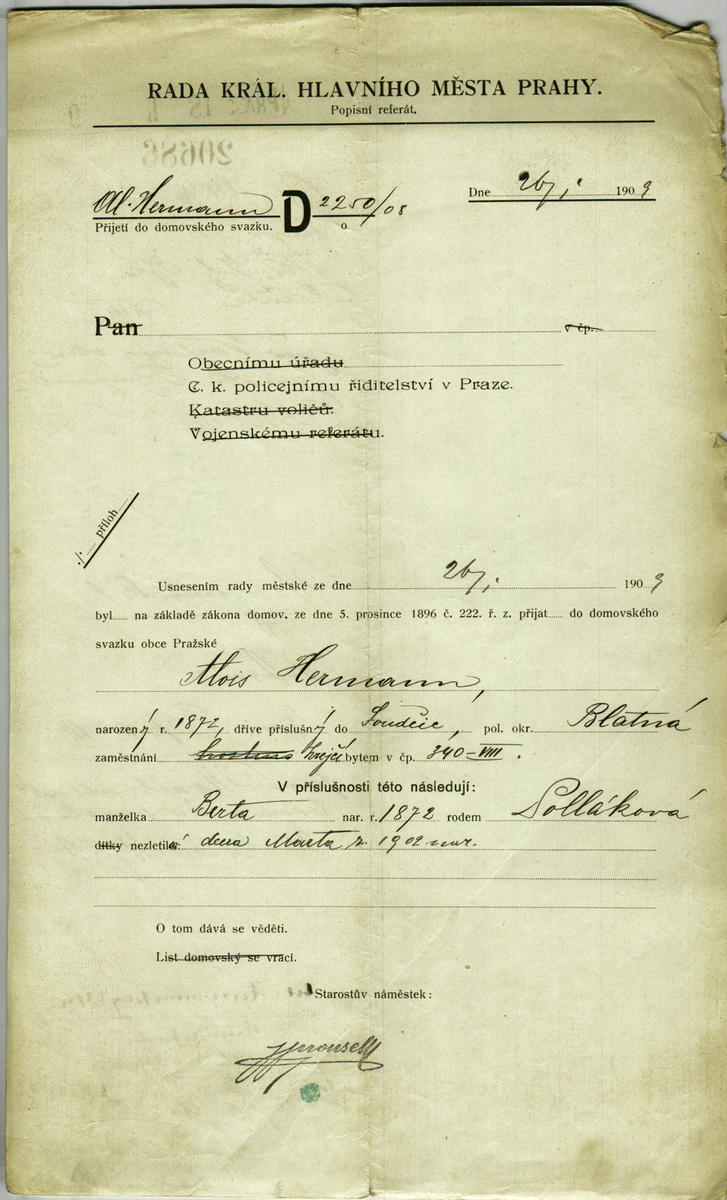 RADA KRÁL. HLAVNÍHO MĚSTA PRAHY.
Popisní referát.
20686
Al. Hermann D 2250/08
Dne 26/I 1909
Přijetí do domovského svazku. o
Pan v čp.
Obecnímu úřadu
C. k. policejnímu řiditelství v Praze.
Katastru voličů.
Vojenskému referátu.
./. příloh
Usnesením rady městské ze dne 26/I 1909
byl na základě zákona domov. ze dne 5. prosince 1896 č. 222. ř. z. přijat do domovského
svazku obce Pražské
Alois Hermann,
narozený r. 1872, dříve příslušný do pol. okr. Blatná
zaměstnání krejčí bytem v čp. 340-VIII.
V příslušnosti této následují:
manželka Berta nar. r. 1872 rodem Polláková
dítky nezletilá: dcera Marta r. 1902 nar.
O tom dává se věděti.
List domovský se vrací.
Starostův náměstek: